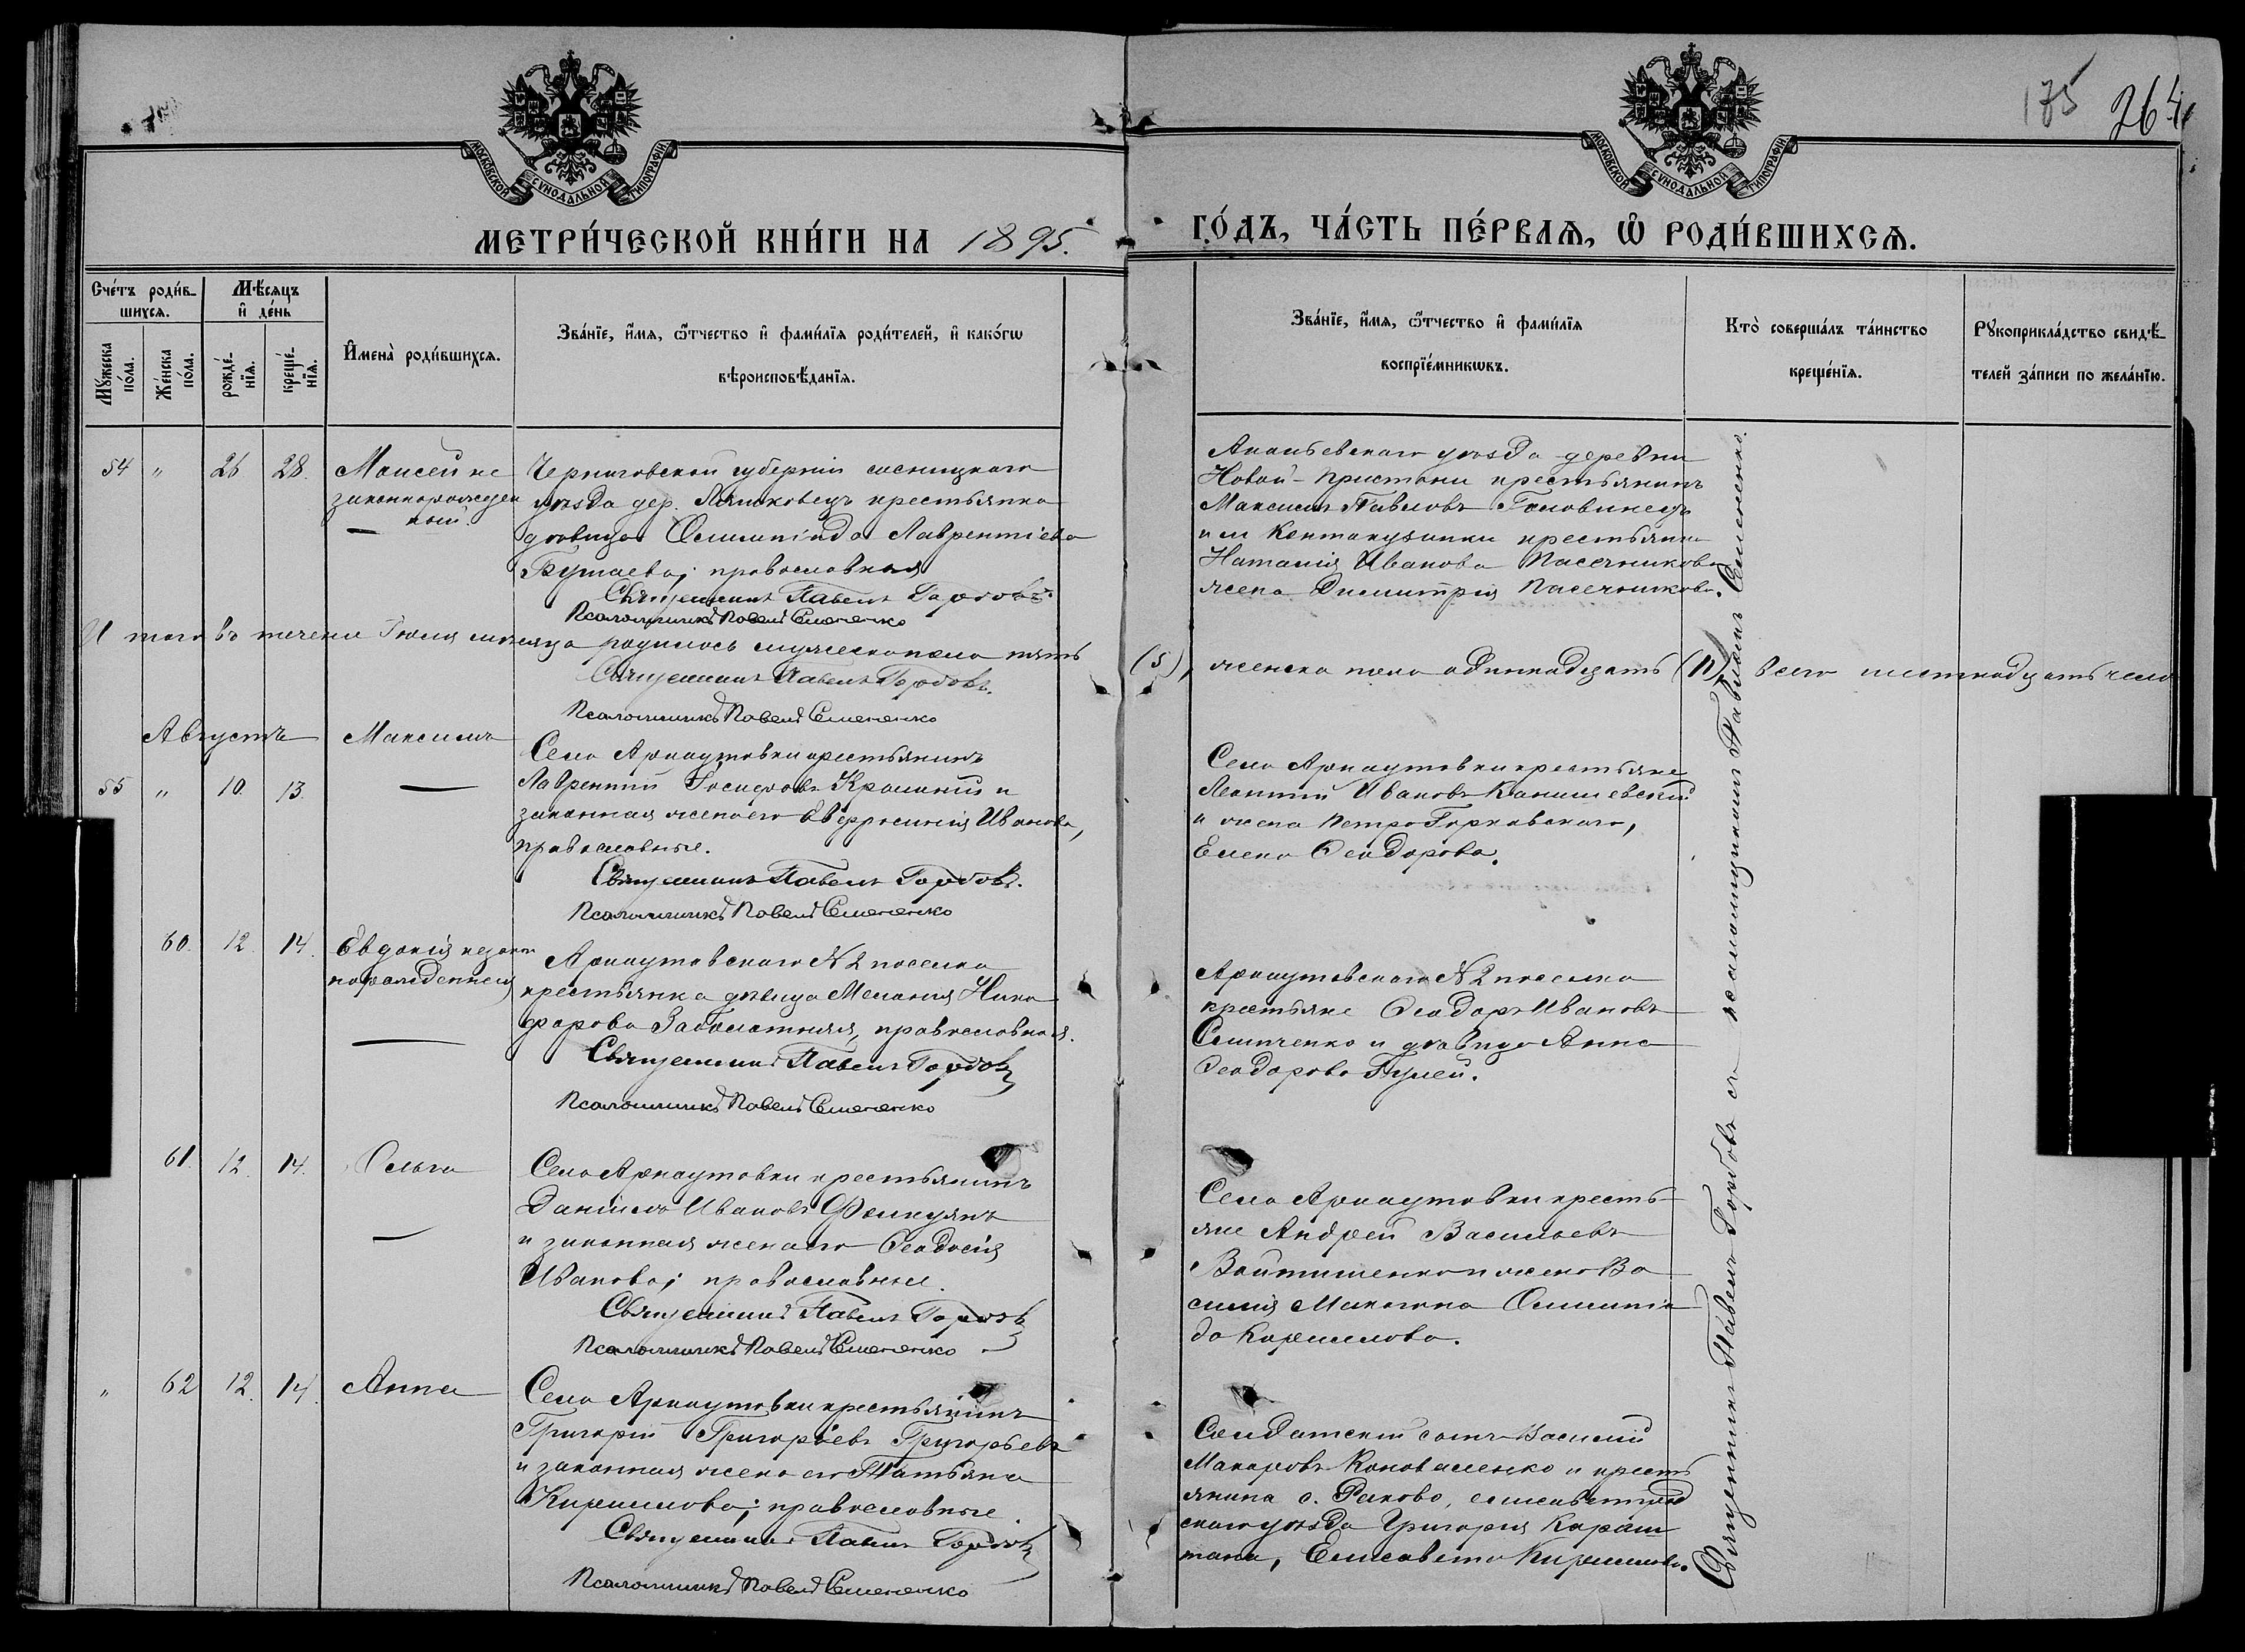 175 264
МОСКОВСКОЙ СѴНОДАЛЬНОЙ ТИПОГРАФІИ.
МОСКОВСКОЙ СѴНОДАЛЬНОЙ ТИПОГРАФІИ.
МЕТРИ́ЧЕСКОЙ КНИ́ГИ НА 1895.
ГО́ДЪ, ЧА́СТЬ ПЕ́РВАѦ, Ѡ РОДИ́ВШИХСѦ.
Сче́тъ роди́в-
шихсѧ.
Мѣ́сѧцъ
и҆ де́нь
Мꙋ́жеска
по́ла.
Же́нска
по́ла.
рожде́-
нїѧ.
креще́-
нїѧ.
И҆мена̀ роди́вшихсѧ.
Зва́нїе, и҆́мѧ, ѻ҆́тчество и҆ фами́лїѧ роди́телей, и҆ како́гѡ
вѣроисповѣ́данїѧ.
Зва́нїе, и҆́мѧ, ѻ҆́тчество и҆ фами́лїѧ
воспрїе́мникѡвъ.
Кто̀ соверша́лъ та́инство
креще́нїѧ.
Рꙋкоприкла́дство свидѣ́-
телей за́писи по жела́нїю.
54 " 26 28.
Моисей не
законнорожден
ный.
Черниговской губерніи сосницкаго
уѣзда дер. крестьянка
дѣвица Олимпіида Лаврентіева
православная
Священникъ Павелъ Горбовъ.
Псаломщикъ Павелъ Семененко
Ананьевскаго уѣзда деревни
Новой-Пристани крестьянинъ
Максимъ Павловъ Головинецъ
и м Кантакузинки крестьянка
Наталія Иванова Пасечникова
жена Димитрія Пасечникова.
И того въ теченіи Іюля мѣсяца родилось мужеска пола пять
(5), женска пола одиннадцать (11) всего шестнадцать чело
Священникъ Павелъ Горбовъ.
Псаломщикъ Павелъ Семененко
Августъ
55 " 10. 13.
Максимъ
Села Арнаутовки крестьянинъ
Лаврентій Іосифовъ и
законная жена его Евфросинія Иванова,
православные.
Священникъ Павелъ Горбовъ.
Псаломщикъ Павелъ Семененко
Села Арнаутовки крестьяне
Леонтій Ивановъ
и жена Петра Горковскаго,
Елена Ѳеодорова.
60. 12. 14.
Евдокія незакон
норожденная
Арнаутовскаго N 2 поселка
крестьянка дѣвица Меланія Ники
форова Заболотняя, православная.
Священникъ Павелъ Горбовъ
Псаломщикъ Павелъ Семененко
Арнаутовскаго N 2 поселка
крестьяне Ѳеодоръ Ивановъ
и дѣвица Анна
Ѳеодорова
61. 12. 14.
Ольга
Села Арнаутовки крестьянинъ
Даніилъ Ивановъ
и законная жена его Ѳеодосія
Иванова; православные.
Священникъ Павелъ Горбовъ
Псаломщикъ Павелъ Семененко
Села Арнаутовки кресть
яне Андрей Васильевъ
Войтишенко и жена Ва
силія Макогона Олимпіа
да Кириллова.
" 62 12. 14.
Анна
Села Арнаутовки крестьянинъ
Григорій Григорьевъ Григорьевъ
и законная жена его Татьяна
Кириллова; православные
Священникъ Павелъ Горбовъ
Псаломщикъ Павелъ Семененко
Солдатскій сынъ Василій
Макаровъ Коноваленко и кресть
янина с. елисаветград
скаго уѣзда Григорія
Елисавета Кириллова.
Священникъ Павелъ Горбовъ съ псаломщикомъ Павломъ Семененко.